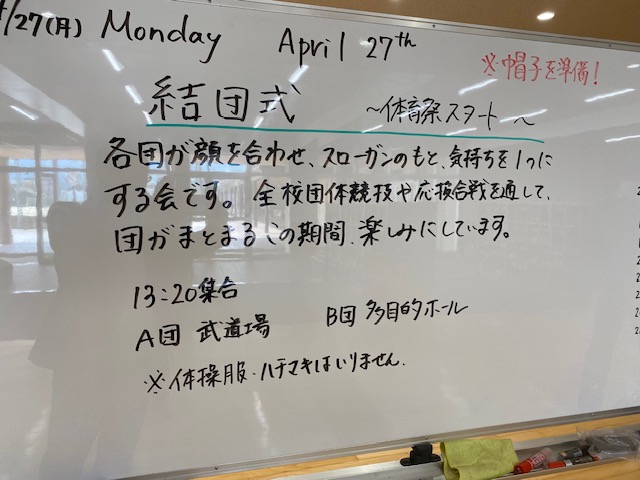 4/27(月) Monday April 27th
※帽子を準備!
結団式 ～体育祭スタート～
各団が顔を合わせ、スローガンのもと、気持ちを1つに
する会です。全校団体競技や応援合戦を通して、
団がまとまるこの期間、楽しみにしています。
13:20集合
A団 武道場 B団 多目的ホール
※体操服・ハチマキはいりません.